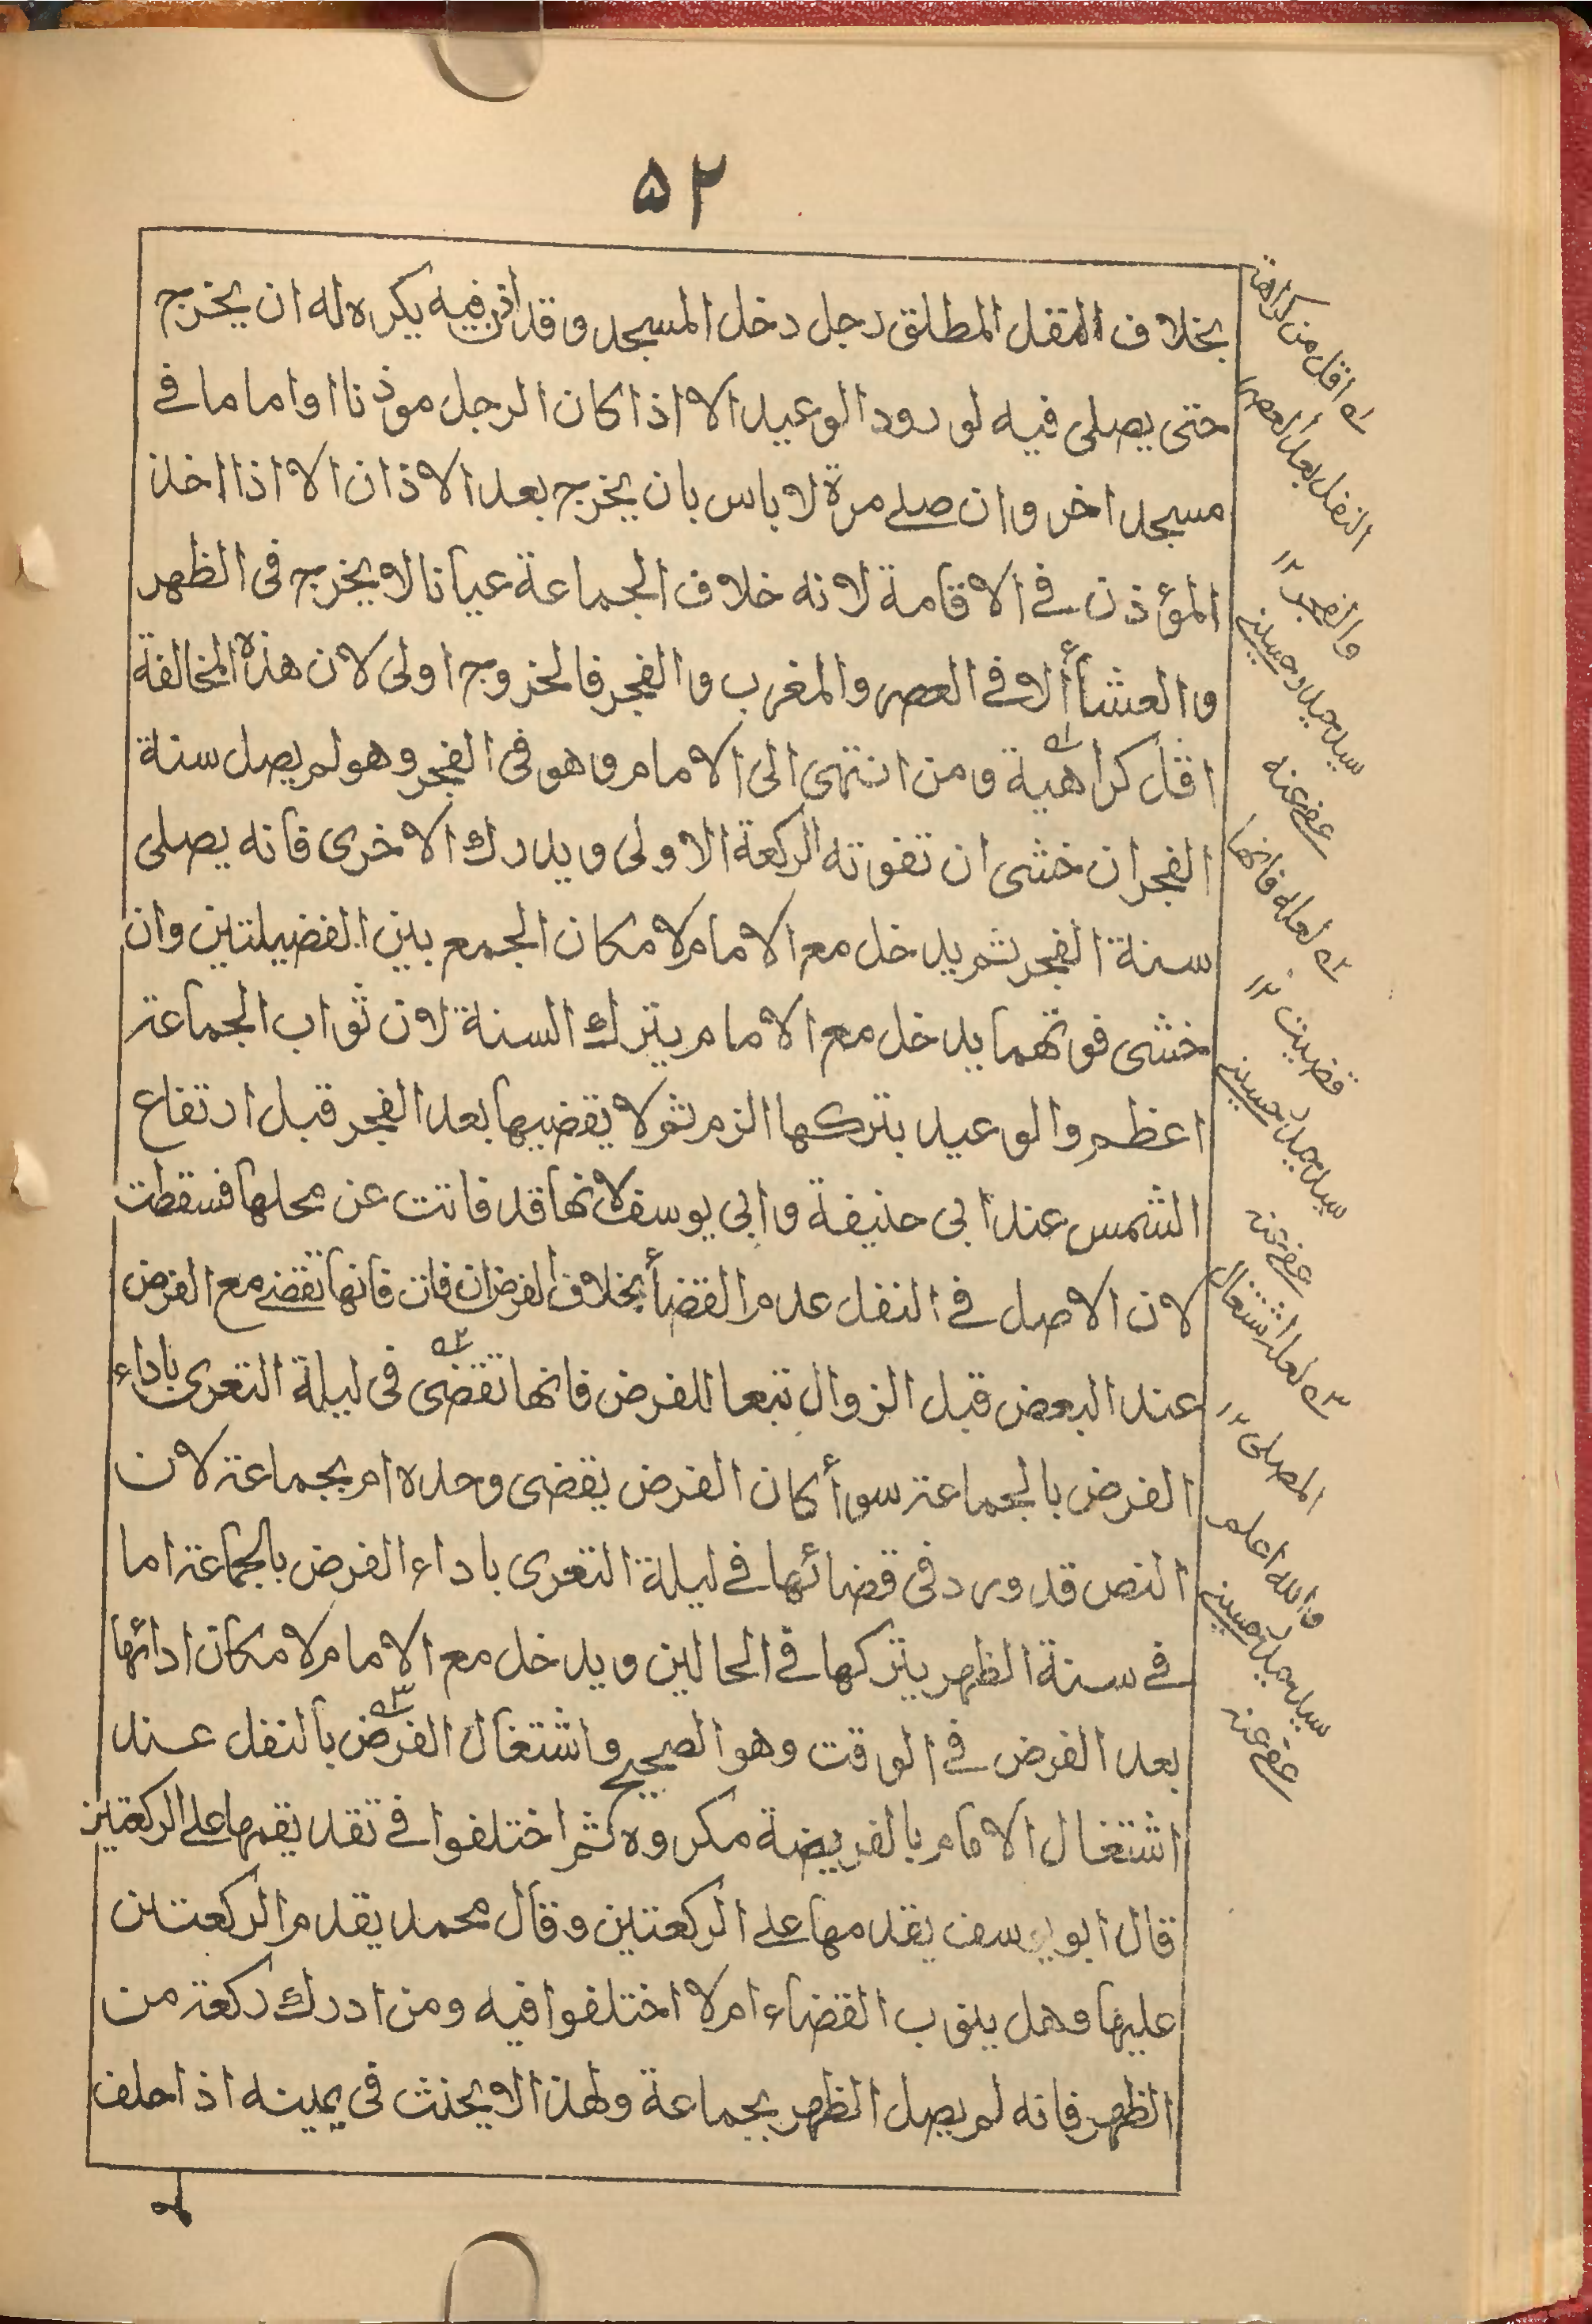 ۵۲
بخلاف النفل المطلق رجل دخل المسجد وقد اذن فيه يكره له ان يخرج
حتى يصلى فيه لورود الوعيد الا اذا كان الرجل موذنا او اماما في
مسجد اخر وان صلے مرة لا باس بان يخرج بعد الاذان الا اذا اخذ
المؤذن في الاقامة لانه خلاف الجماعة عيانا لا يخرج فى الظهر
والعشاأ الا في العصر والمغرب والفجر فالخروج اولى لان هذه المخالفة
اقل كراهية ومن انتهى الى الامام وهو فى الفجر وهو لم يصل سنة
الفجر ان خشى ان تفوته الركعة الاولى ويدرك الاخرى فانه يصلى
سنة الفجر ثم يدخل مع الامام لامكان الجمع بين الفضيلتين وان
خشى فوتهما يدخل مع الامام يترك السنة لان ثواب الجماعة
اعظم والوعيد بتركها الزم ثم لا يقضيها بعد الفجر قبل ارتفاع
الشمس عند ابى حنيفة وابي يوسف لانها قد فاتت عن محلها فسقطت
لان الاصل في النفل عدم القضأ بخلاف الفرض ان فات فانها تقضے مع الفرض
عند البعض قبل الزوال تبعا للفرض فانها تقضى فى ليلة التعرى باداء
الفرض بالجماعة سوأ كان الفرض يقضى وحده ام بجماعة لان
النص قد ورد فى قضائها في ليلة التعرى باداء الفرض بالجماعة اما
في سنة الظهر يتركها في الحالين ويدخل مع الامام لامكان ادائها
بعد الفرض في الوقت وهو الصحيح واشتغال الفرض بالنفل عند
اشتغال الامام بالفريضة مكروه ثم اختلفوا في تقديمها على الركعتين
قال ابو يوسف يقدمها على الركعتين وقال محمد يقدم الركعتين
عليها وهل ينوب القضاء ام لا اختلفوا فيه ومن ادرك ركعة من
الظهر فانه لم يصل الظهر بجماعة ولهذا لا يحنث فى يمينه اذا حلف
ـه اقل من كراهة
النفل بعد العصر
والفجر ۱۲
سيد حسينے
عفے عنه
ـه لعله فانها
قضيت ۱۲
سيد حسينے
عفے عنه
ـه لعله اشتغال
المصلى ۱۲
والله اعلم
سيد حسينے
عفے عنه